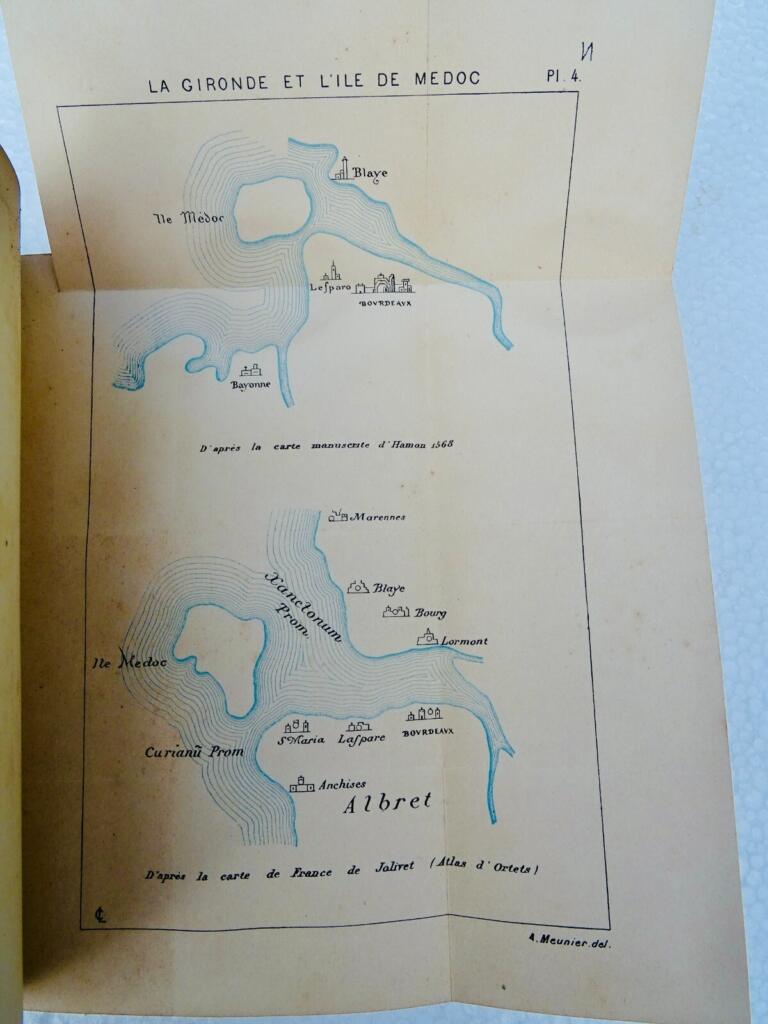 LA GIRONDE ET L'ILE DE MEDOC
Pl. 4.
Blaye
Ile Médoc
Leſparo
BOVRDEAVX
Bayonne
D'aprés la carte manuscrite d'Hamon 1568
Marennes
Xanctonum
Prom
Blaye
Bourg
Lormont
Ile Medoc
Sᵗ Maria
Laſpare
BOVRDEAVX
Curianũ Prom
Anchises
Albret
D'aprés la carte de France de Jolivet (Atlas d'Ortels)
A. Meunier. del.